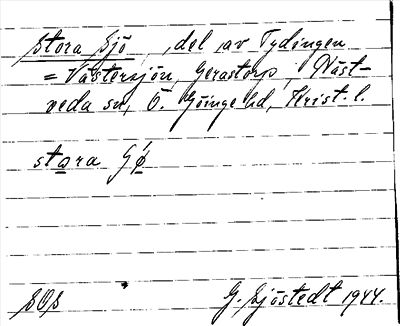 Stora Sjö, del av Tydingen
= Västersjön, Gerastorp, Näst-
veda sn, Ö. Göinge hd, Krist. l.
stora
SOS
G. Sjöstedt 1944.